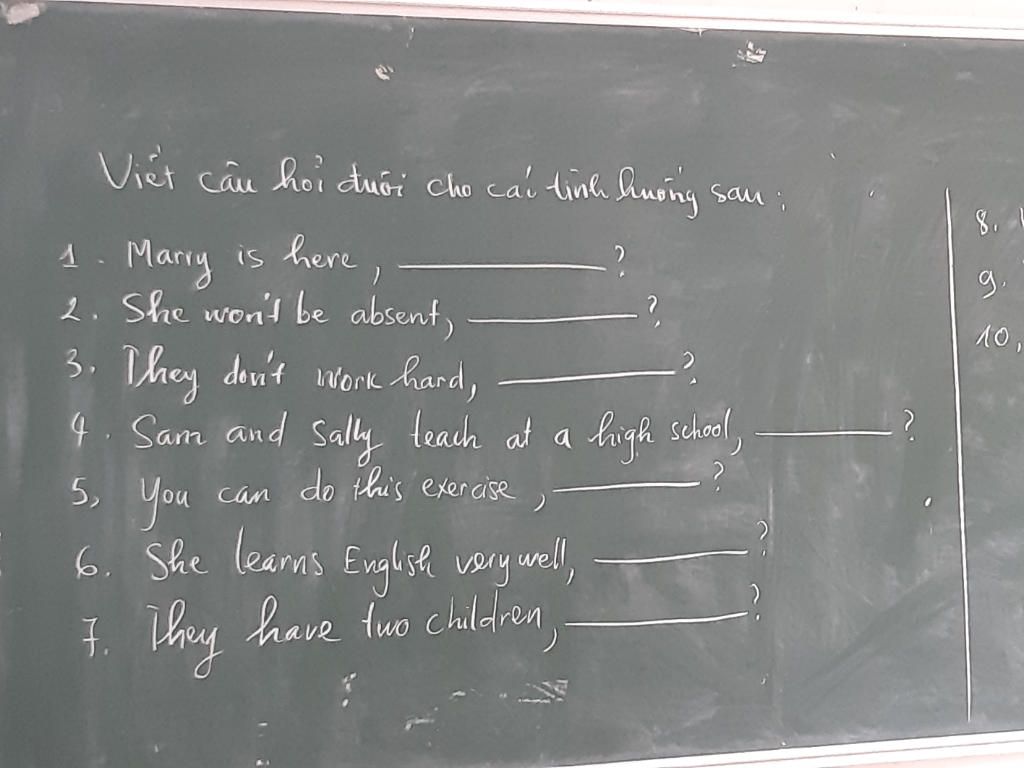 Viết câu hỏi đuôi cho cái tình huống sau:
1. Marry is here, ________?
2. She won't be absent, ________?
3. They don't work hard, ________?
4. Sam and Sally teach at a high school, ________?
5, You can do this exercise, ________?
6. She learns English very well, ________?
7. They have two children, ________?
8.
9.
10,